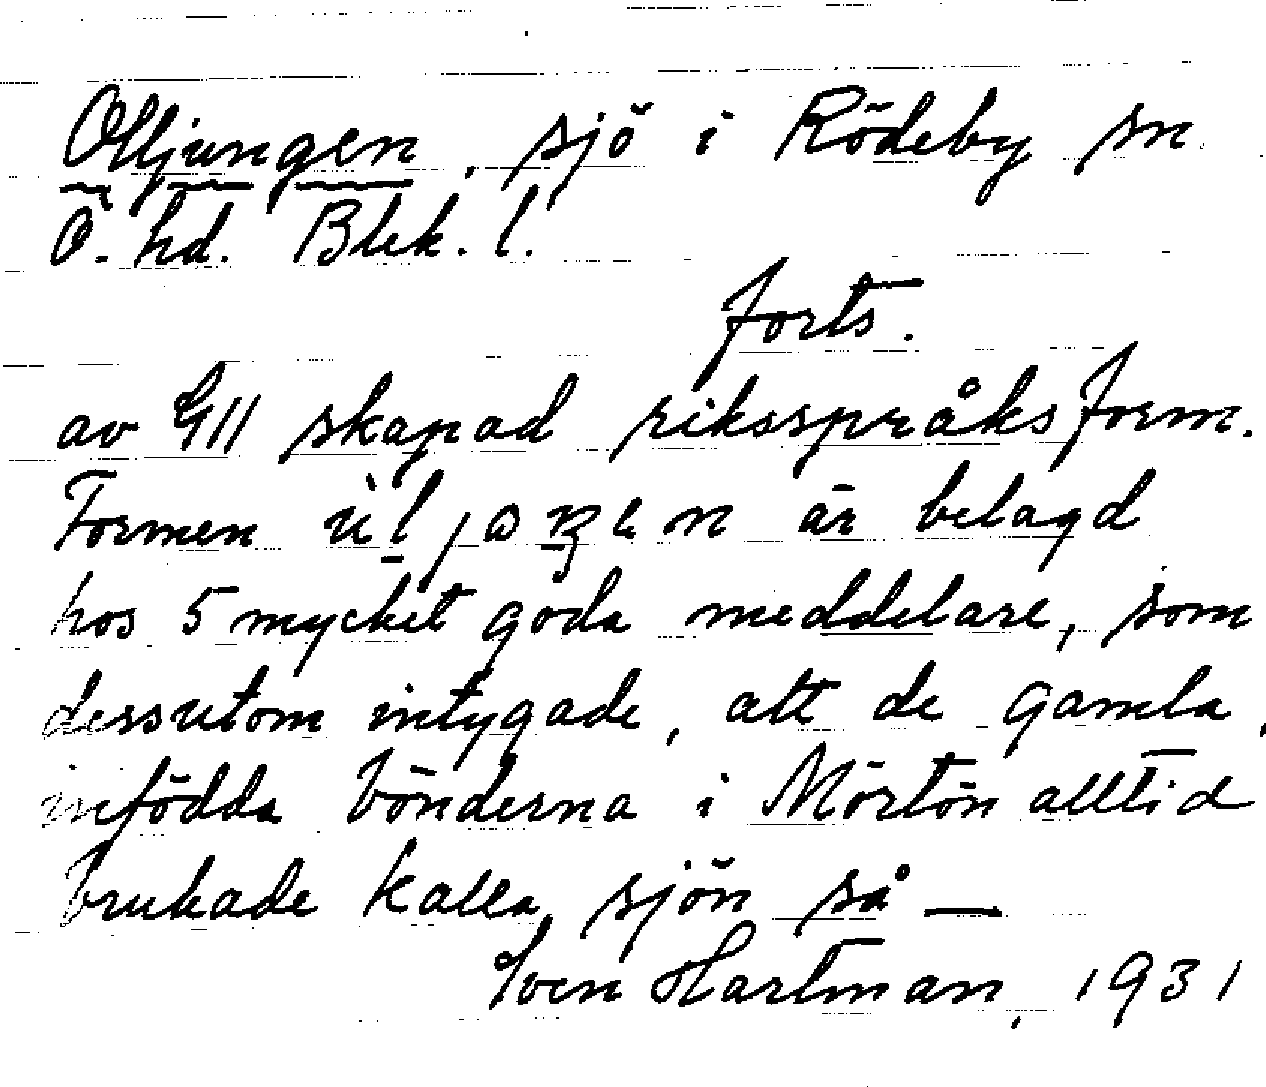 Olljungen, sjö i Rödeby sn
Ö. hd. Blek. l.
forts.
av skapad riksspråksform.
Formen är belagd
hos 5 mycket goda meddelare, som
dessutom intygade, att de gamla,
infödda bönderna i Mörtön alltid
brukade kalla sjön så —
Sven Hartman, 1931